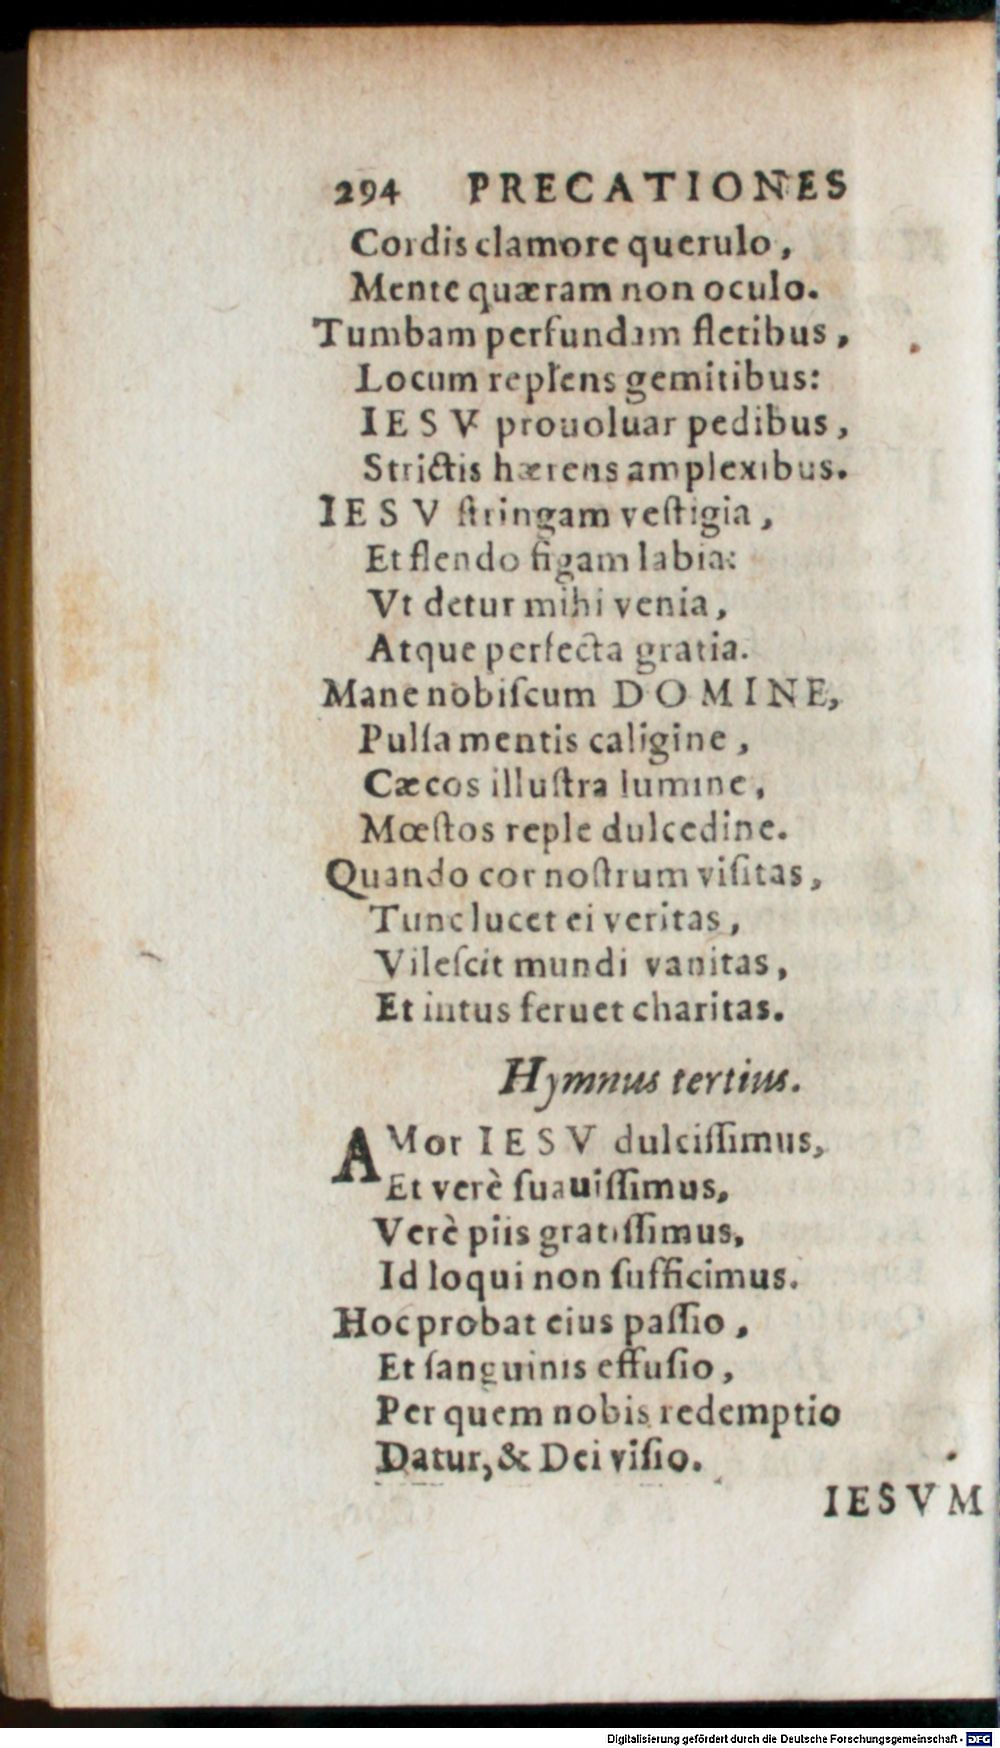 294 PRECATIONES
Cordis clamore querulo,
Mente quæram non oculo.
Tumbam perfundam fletibus,
Locum replens gemitibus:
IESV prouoluar pedibus,
Strictis hærens amplexibus.
IESV ſtringam veſtigia,
Et flendo figam labia:
Vt detur mihi venia,
Atque perfecta gratia.
Mane nobiſcum DOMINE,
Pulſa mentis caligine,
Cæcos illuſtra lumine,
Mœſtos reple dulcedine.
Quando cor noſtrum viſitas,
Tunc lucet ei veritas,
Vileſcit mundi vanitas,
Et intus feruet charitas.
Hymnus tertius.
AMor IESV dulciſſimus,
Et verè ſuauiſſimus,
Verè piis gratiſſimus,
Id loqui non ſufficimus.
Hoc probat eius paſſio,
Et ſanguinis effuſio,
Per quem nobis redemptio
Datur, & Dei viſio.
IESVM
Digitalisierung gefördert durch die Deutsche Forschungsgemeinschaft - DFG